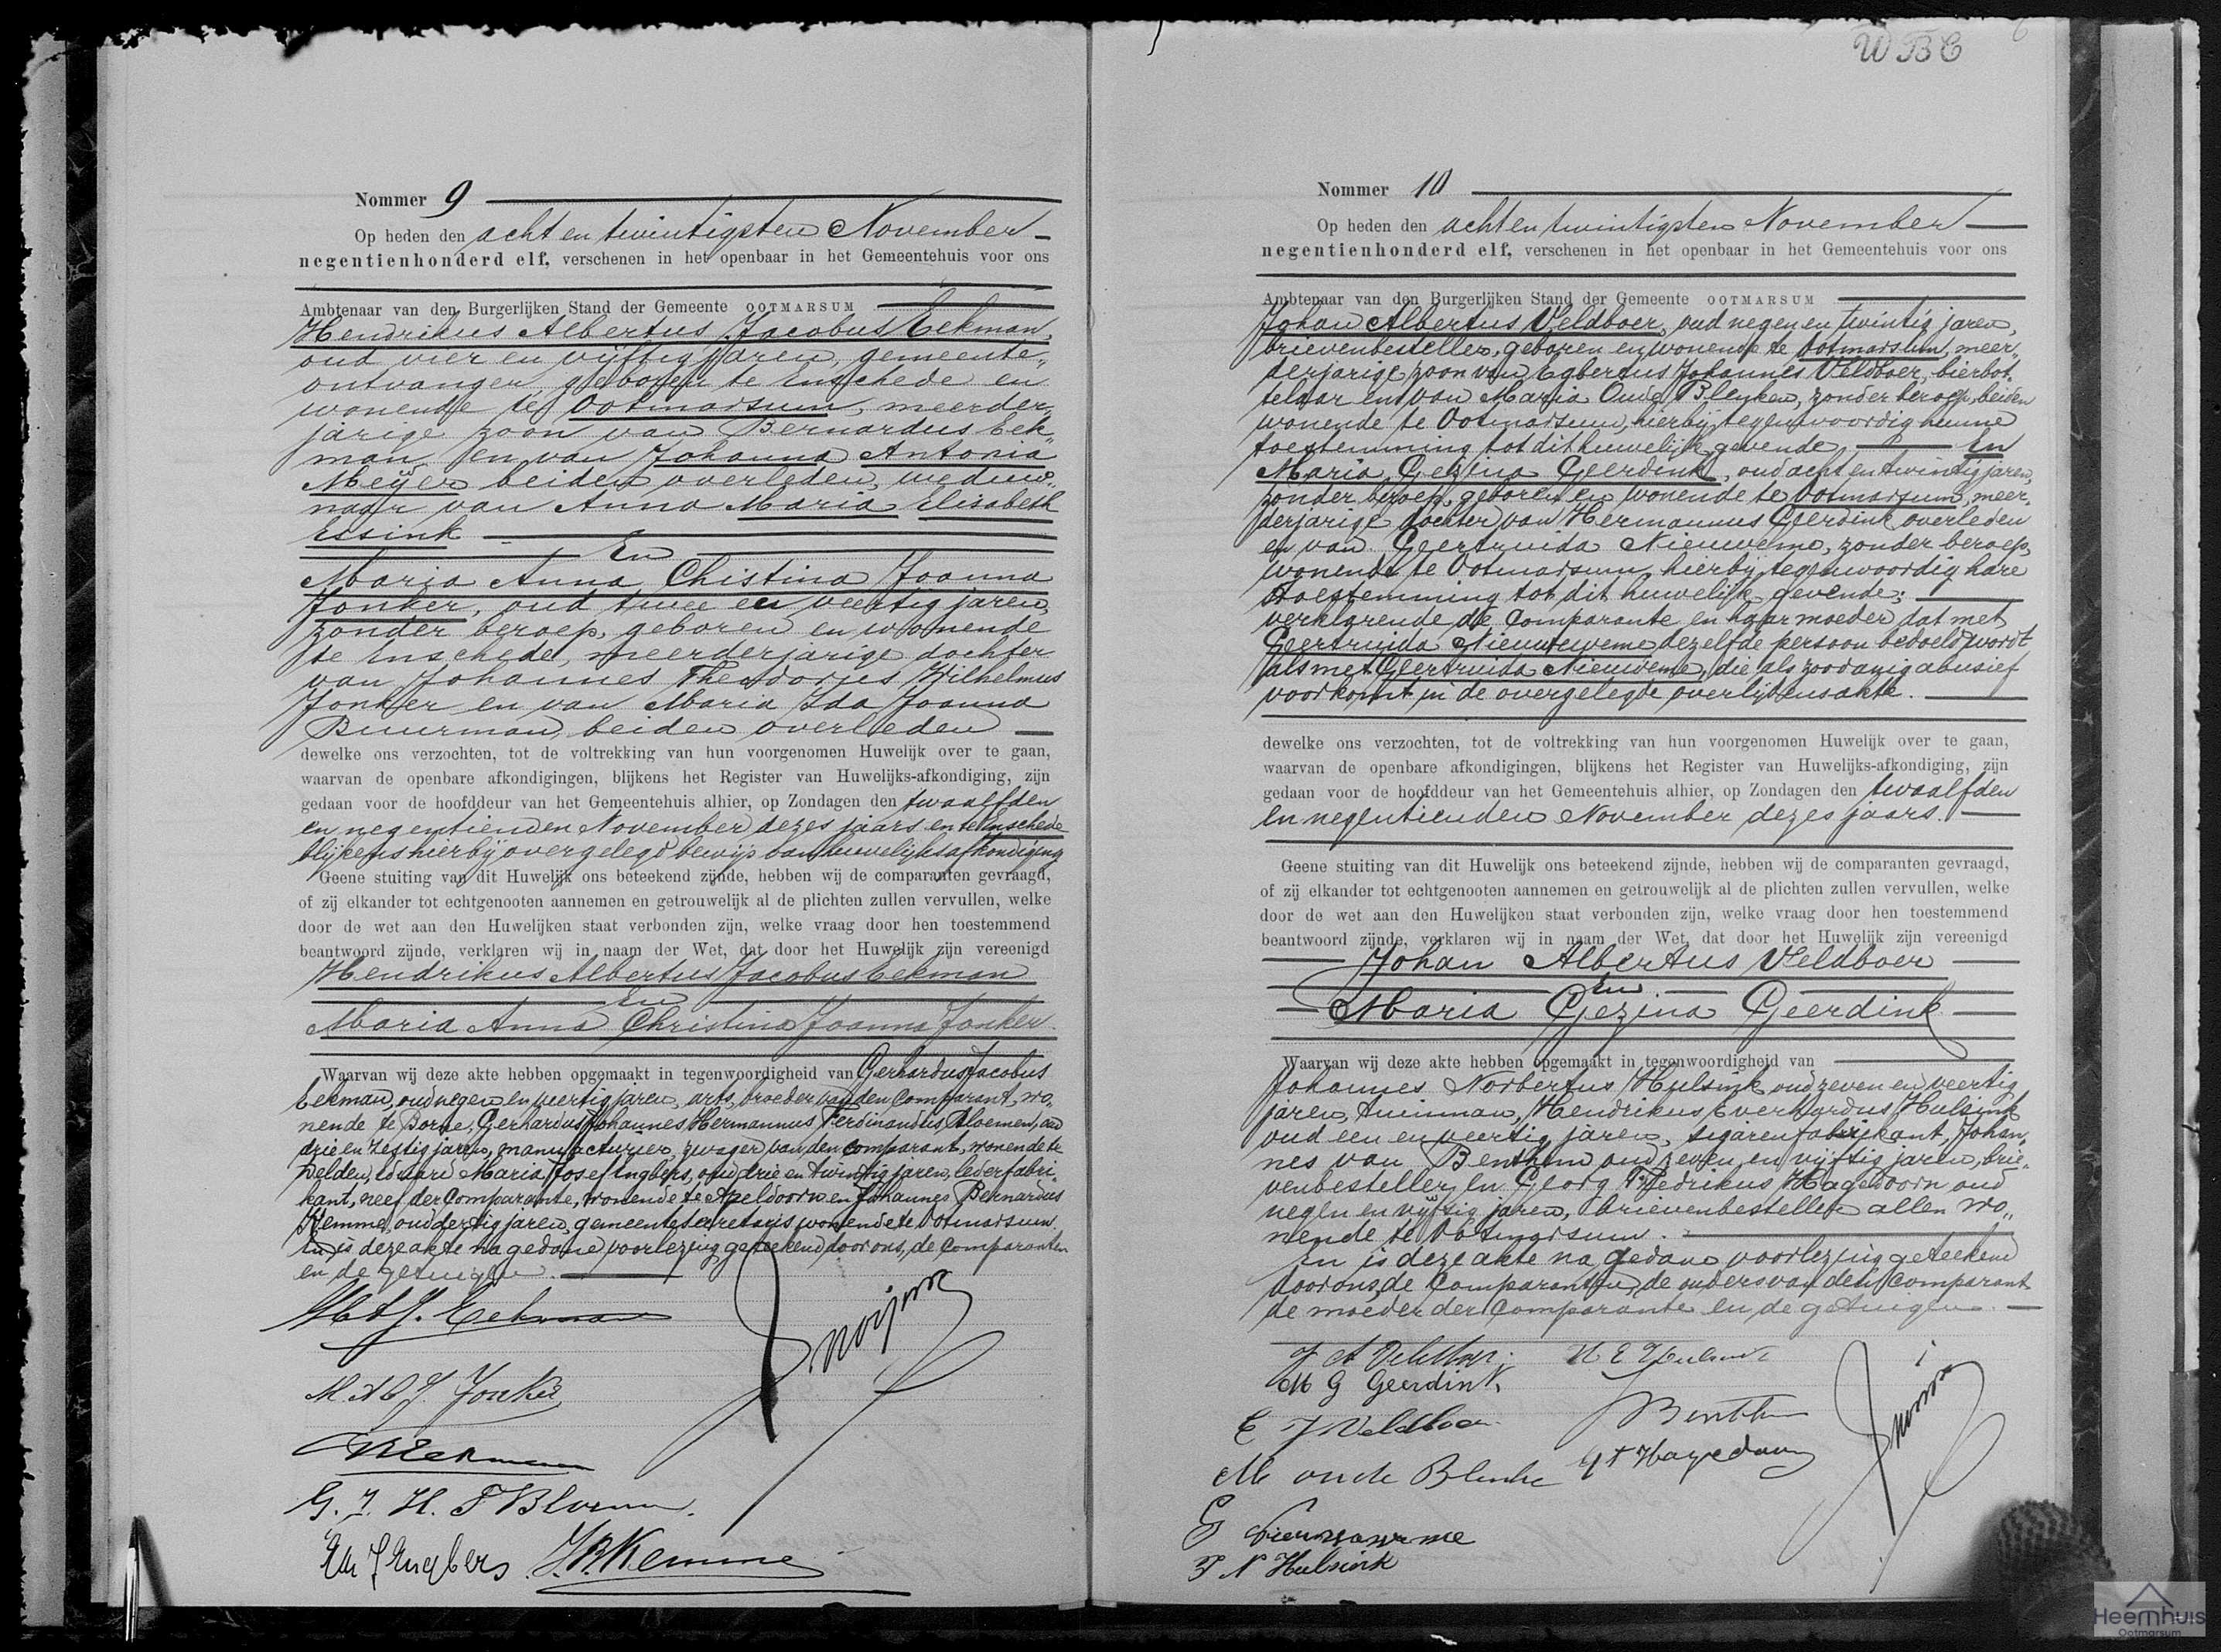 Nommer 9
Op heden den acht en twintigsten November
negentienhonderd elf, verschenen in het openbaar in het Gemeentehuis voor ons
Ambtenaar van den Burgerlijken Stand der Gemeente OOTMARSUM
Hendrikus Albertus Jacobus Eekman,
oud vier en vijftig jaren, gemeente„
ontvanger geboren te Enschede en
wonende te Ootmarsum, meerder„
jarige zoon van Bernardus Eek„
man en van Johanna Antonia
Meijer beiden overleden, weduw„
naar van Anna Maria Elisabeth
Essink
En
Maria Anna Chistina Joanna
Jonker, oud twee en veertig jaren,
zonder beroep, geboren en wonende
te Enschede, meerderjarige dochter
van Johannes Theodorus Wilhelmus
Jonker en van Maria Ida Joanna
Buurman, beiden overleden
dewelke ons verzochten, tot de voltrekking van hun voorgenomen Huwelijk over te gaan,
waarvan de openbare afkondigingen, blijkens het Register van Huwelijks-afkondiging, zijn
gedaan voor de hoofddeur van het Gemeentehuis alhier, op Zondagen den twaalfden
en negentienden November dezes jaars en te Enschede
blijkens hierbij overgelegd bewijs van huwelijksafkondiging
Geene stuiting van dit Huwelijk ons beteekend zijnde, hebben wij de comparanten gevraagd,
of zij elkander tot echtgenooten aannemen en getrouwelijk al de plichten zullen vervullen, welke
door de wet aan den Huwelijken staat verbonden zijn, welke vraag door hen toestemmend
beantwoord zijnde, verklaren wij in naam der Wet, dat door het Huwelijk zijn vereenigd
Hendrikus Albertus Jacobus Eekman
En
Maria Anna Christina Joanna Jonker.
Waarvan wij deze akte hebben opgemaakt in tegenwoordigheid van Gerhardus Jacobus
Eekman, oud negen en veertig jaren, arts, broeder van den comparant, wo„
nende te Borne, Gerhardus Johannes Hermannus Ferdinandus Bloemen, oud
drie en zestig jaren, manufacturier, zwager van den comparant, wonende te
Delden, Eduard Maria Josef Engbers, oud drie en twintig jaren, lederfabri„
kant, neef der Comparante, wonende te Apeldoorn en Johannes Bernardus
Kemme, oud dertig jaren, gemeentesecretaris wonende te Ootmarsum.
En is deze akte na gedane voorlezing geteekend door ons, de Comparanten
en de getuigen.
H A J. Eekman
M. A C J. Jonker
Eekman
G. J. H. F Bloemen.
Ed J Engbers. J. B. Kemme
W B C
Nommer 10
Op heden den acht en twintigsten November
negentienhonderd elf, verschenen in het openbaar in het Gemeentehuis voor ons
Ambtenaar van den Burgerlijken Stand der Gemeente OOTMARSUM
Johan Albertus Veldboer, oud negen en twintig jaren,
brievenbesteller, geboren en wonende te Ootmarsum, meer„
derjarige zoon van Egbertus Johannes Veldboer, bierbot„
telaar en van Maria Oude Blenken, zonder beroep, beiden
wonende te Ootmarsum, hierbij tegenwoordig hunne
toestemming tot dit huwelijk gevende, En
Maria Gezina Geerdink, oud acht en twintig jaren,
zonder beroep, geboren en wonende te Ootmarsum, meer„
derjarige dochter van Hermannus Geerdink overleden
en van Geertruida Nieuweme, zonder beroep,
wonende te Ootmarsum, hierbij tegenwoordig hare
toestemming tot dit huwelijk gevende;
verklarende de Comparante en haar moeder dat met
Geertruida Nieuweweme dezelfde persoon bedoeld wordt
als met Geertruida Nieuweme, die als zoodanig abusief
voorkomt in de overgelegde overlijdensakte.
dewelke ons verzochten, tot de voltrekking van hun voorgenomen Huwelijk over te gaan,
waarvan de openbare afkondigingen, blijkens het Register van Huwelijks-afkondiging, zijn
gedaan voor de hoofddeur van het Gemeentehuis alhier, op Zondagen den twaalfden
en negentienden November dezes jaars.
Geene stuiting van dit Huwelijk ons beteekend zijnde, hebben wij de comparanten gevraagd,
of zij elkander tot echtgenooten aannemen en getrouwelijk al de plichten zullen vervullen, welke
door de wet aan den Huwelijken staat verbonden zijn, welke vraag door hen toestemmend
beantwoord zijnde, verklaren wij in naam der Wet, dat door het Huwelijk zijn vereenigd
Johan Albertus Veldboer
En
Maria Gezina Geerdink
Waarvan wij deze akte hebben opgemaakt in tegenwoordigheid van
Johannes Norbertus Hulsink oud zeven en veertig
jaren, tuinman, Hendrikus Everhardus Hulsink
oud een en veertig jaren, sigarenfabrijkant, Johan„
nes van Benthem oud zeven en vijftig jaren, brie„
venbesteller en Georg Fredrikus Hagedoorn oud
negen en vijftig jaren, brievenbesteller allen wo„
nende te Ootmarsum.
En is deze akte na gedane voorlezing geteekend
door ons, de Comparanten, de ouders van den Comparant
de moeder der Comparante en de getuigen.
J A Veldboer. H E Hulsink
M G Geerdink
E J Veldboer Benthem
M oude Blenke G F Hagedoorn
G Nieuweweme
J N Hulsink
Heemhuis
Ootmarsum